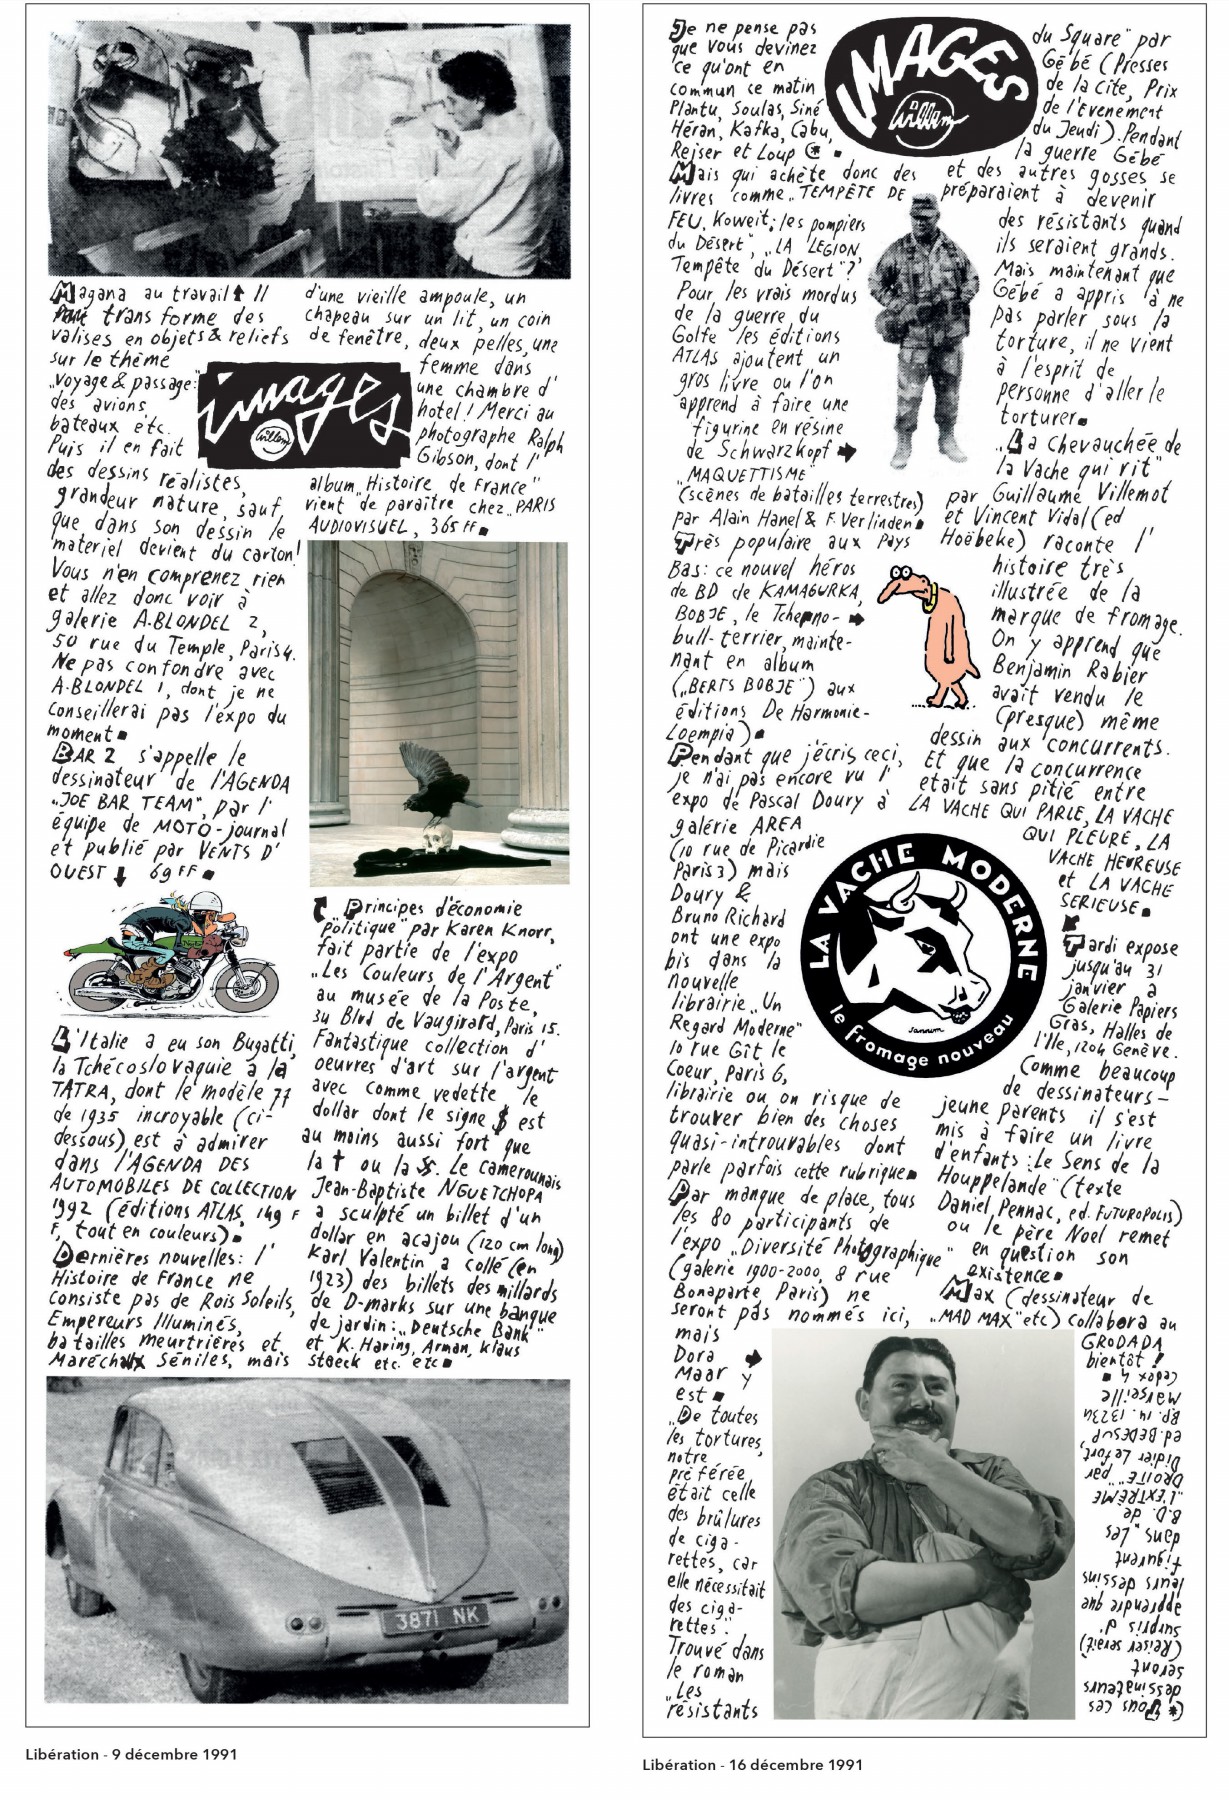 Magana au travail ↑ Il
transforme des
valises en objets & reliefs
sur le thème
„voyage & passage:"
des avions,
bateaux etc.
Puis il en fait
des dessins réalistes,
grandeur nature, sauf,
que dans son dessin le
materiel devient du carton!
Vous n'en comprenez rien
et allez donc voir à
galerie A.BLONDEL 2,
50 rue du Temple, Paris 4.
Ne pas confondre avec
A.BLONDEL 1, dont je ne
conseillerai pas l'expo du
moment ■
BAR 2 s'appelle le
dessinateur de l'AGENDA
„JOE BAR TEAM", par l'
équipe de MOTO-journal
et publié par VENTS D'
OUEST ↓ 69 FF ■
L'Italie a eu son Bugatti,
la Tchécoslovaquie a la
TATRA, dont le modèle 77
de 1935 incroyable (ci-
dessous) est à admirer
dans l'AGENDA DES
AUTOMOBILES DE COLLECTION
1992 (éditions ATLAS, 149 F
F, tout en couleurs) ■
Dernières nouvelles: l'
Histoire de France ne
consiste pas de Rois Soleils,
Empereurs Illuminés,
batailles meurtrières et
Maréchaux Séniles, mais
d'une vieille ampoule, un
chapeau sur un lit, un coin
de fenêtre, deux pelles, une
femme dans
une chambre d'
hotel! Merci au
photographe Ralph
Gibson, dont l'
album „Histoire de France"
vient de paraître chez „PARIS
AUDIOVISUEL, 365 FF ■
images
Willem
„Principes d'économie
politique" par Karen Knorr,
fait partie de l'expo
„Les Couleurs de l'Argent"
au musée de la Poste,
34 Blvd de Vaugirard, Paris 15.
Fantastique collection d'
oeuvres d'art sur l'argent
avec comme vedette le
dollar dont le signe $ est
au moins aussi fort que
la ✝ ou la 卐. Le camerounais
Jean-Baptiste NGUETCHOPA
a sculpté un billet d'un
dollar en acajou (120 cm long)
Karl Valentin a collé (en
1923) des billets des millards
de D-marks sur une banque
de jardin: „Deutsche Bank"
et K. Haring, Arman, Klaus
Staeck etc. etc ■
3871 NK
Libération - 9 décembre 1991
Je ne pense pas
que vous devinez
ce qu'ont en
commun ce matin
Plantu, Soulas, Siné
Héran, Kafka, Cabu,
Reiser et Loup (* ■
Mais qui achète donc des
livres comme „TEMPÊTE DE
FEU, Koweit: les pompiers
du Désert", „LA LEGION,
Tempête du Désert"?
Pour les vrais mordus
de la guerre du
Golfe les éditions
ATLAS ajoutent un
gros livre ou l'on
apprend à faire une
figurine en résine
de Schwarzkopf →
„MAQUETTISME"
(scènes de batailles terrestres)
par Alain Hanel & F. Verlinden ■
Très populaire aux Pays
Bas: ce nouvel héros
de BD de KAMAGURKA,
BOBJE, le Tcherno- →
bull-terrier, mainte-
nant en album
(„BERTS BOBJE") aux
éditions De Harmonie-
Loempia) ■
Pendant que j'écris ceci,
je n'ai pas encore vu l'
expo de Pascal Doury à
galérie AREA
(10 rue de Picardie
Paris 3) mais
Doury &
Bruno Richard
ont une expo
bis dans la
nouvelle
librairie „Un
Regard Moderne"
10 rue Gît le
Coeur, Paris 6,
librairie ou on risque de
trouver bien des choses
quasi-introuvables dont
parle parfois cette rubrique ■
Par manque de place, tous
les 80 participants de
l'expo „Diversité Photographique"
(galerie 1900-2000, 8 rue
Bonaparte Paris) ne
seront pas nommés ici,
mais
Dora →
Maar y
est ■
„De toutes
les tortures,
notre
préférée
était celle
des brûlures
de ciga-
rettes, car
elle nécessitait
des ciga-
rettes".
Trouvé dans
le roman
„Les
résistants
IMAGES
Willem
du Square" par
Gébé (Presses
de la Cîte, Prix
de l'Evenement
du Jeudi). Pendant
la guerre Gébé
et des autres gosses se
préparaient à devenir
des résistants quand
ils seraient grands.
Mais maintenant que
Gébé a appris à ne
pas parler sous la
torture, il ne vient
à l'esprit de
personne d'aller le
torturer ■
„La Chevauchée de
la Vache qui rit"
par Guillaume Villemot
et Vincent Vidal (ed
Hoëbeke) raconte l'
histoire très
illustrée de la
marque de fromage.
On y apprend que
Benjamin Rabier
avait vendu le
(presque) même
dessin aux concurrents.
Et que la concurrence
etait sans pitié entre
LA VACHE QUI PARLE, LA VACHE
QUI PLEURE, LA
VACHE HEUREUSE
et LA VACHE
SERIEUSE ■
LA VACHE MODERNE
le fromage nouveau
Tardi expose
jusqu'au 31
janvier à
Galerie Papiers
Gras, Halles de
l'Ile, 1204 Genève.
Comme beaucoup
de dessinateurs-
jeune parents il s'est
mis à faire un livre
d'enfants: „Le Sens de la
Houppelande" (texte
Daniel Pennac, ed. FUTUROPOLIS)
ou le père Noel remet
en question son
existence ■
Max (dessinateur de
„MAD MAX" etc) collabora au
GRODADA
bientôt!
(* Tous ces
dessinateurs
seront
(Reiser serait)
surpris d'
apprendre que
leurs dessins
figurent
dans „Les
B.D. de
L'EXTRÊME
DROITE" par
Didier Lefort,
ed. BEDESUP
B.P. 14. 13234
Marseille
Cedex 4 ■
Libération - 16 décembre 1991